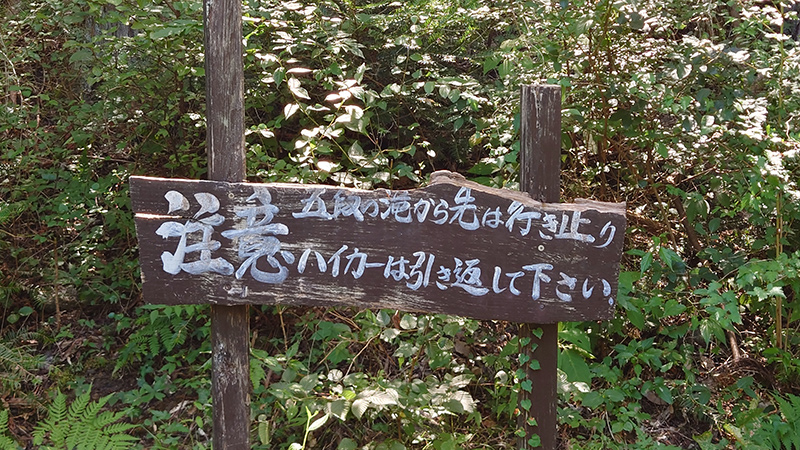 注意
五段の滝から先は行き止り
ハイカーは引き返して下さい。